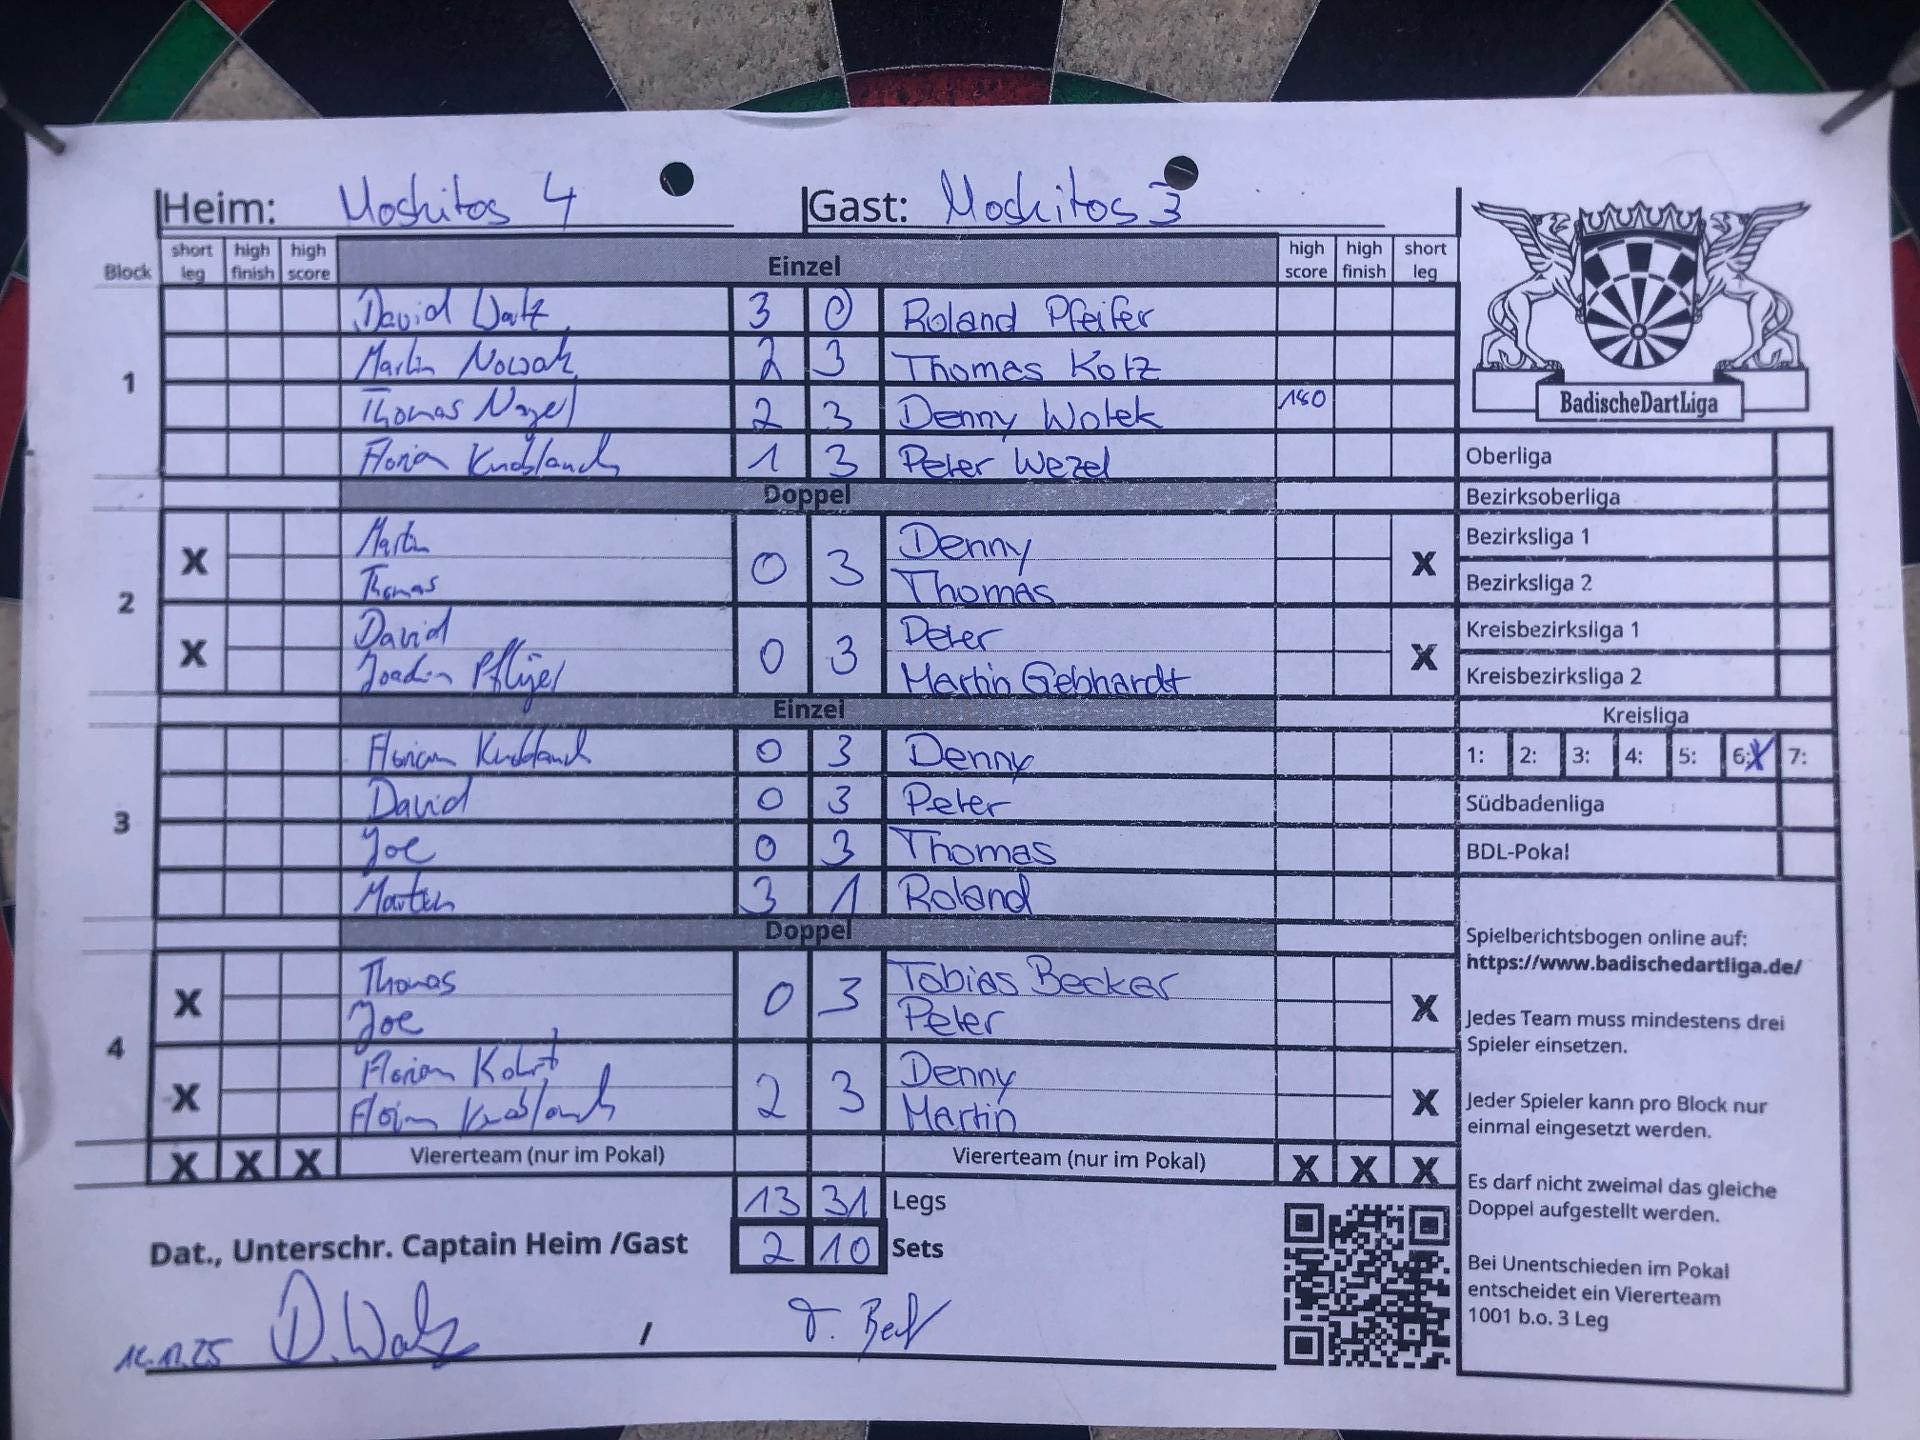 Heim: Moskitos 4 Gast: Moskitos 3
Block short leg high finish high score Einzel high score high finish short leg
1
David Walz 3 0 Roland Pfeifer
Martin Nowak 2 3 Thomas Kotz
Thomas Nagel 2 3 Denny Wolek 180
Florian Knoblauch 1 3 Peter Wezel
Doppel
2
X Martin Thomas 0 3 Denny Thomas X
X David Joachim Pflüger 0 3 Peter Martin Gebhardt X
Einzel
3
Florian Knoblauch 0 3 Denny
David 0 3 Peter
Joe 0 3 Thomas
Martin 3 1 Roland
Doppel
4
X Thomas Joe 0 3 Tobias Becker Peter X
X Florian Florian Knoblauch 2 3 Denny Martin X
X X X Viererteam (nur im Pokal) Viererteam (nur im Pokal) X X X
13 31 Legs
Dat., Unterschr. Captain Heim /Gast 2 10 Sets
D. Walz / T.
BadischeDartLiga
Oberliga
Bezirksoberliga
Bezirksliga 1
Bezirksliga 2
Kreisbezirksliga 1
Kreisbezirksliga 2
Kreisliga
1: 2: 3: 4: 5: 6: X 7:
Südbadenliga
BDL-Pokal
Spielberichtsbogen online auf:
https://www.badischedartliga.de/
Jedes Team muss mindestens drei
Spieler einsetzen.
Jeder Spieler kann pro Block nur
einmal eingesetzt werden.
Es darf nicht zweimal das gleiche
Doppel aufgestellt werden.
Bei Unentschieden im Pokal
entscheidet ein Viererteam
1001 b.o. 3 Leg